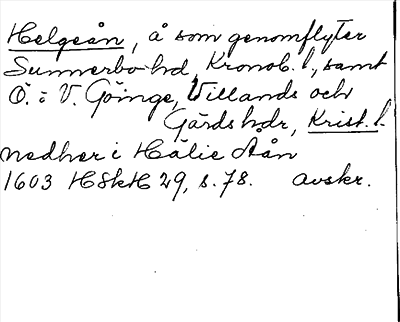 Helgeån, å som genomflyter
Sunnerbo hd, Kronob. l., samt
Ö. o V. Göinge, Villands och
Gärds hdr, Krist. l.
nedher i Hälie Aån
1603 HSkH 29, s. 78. avskr.